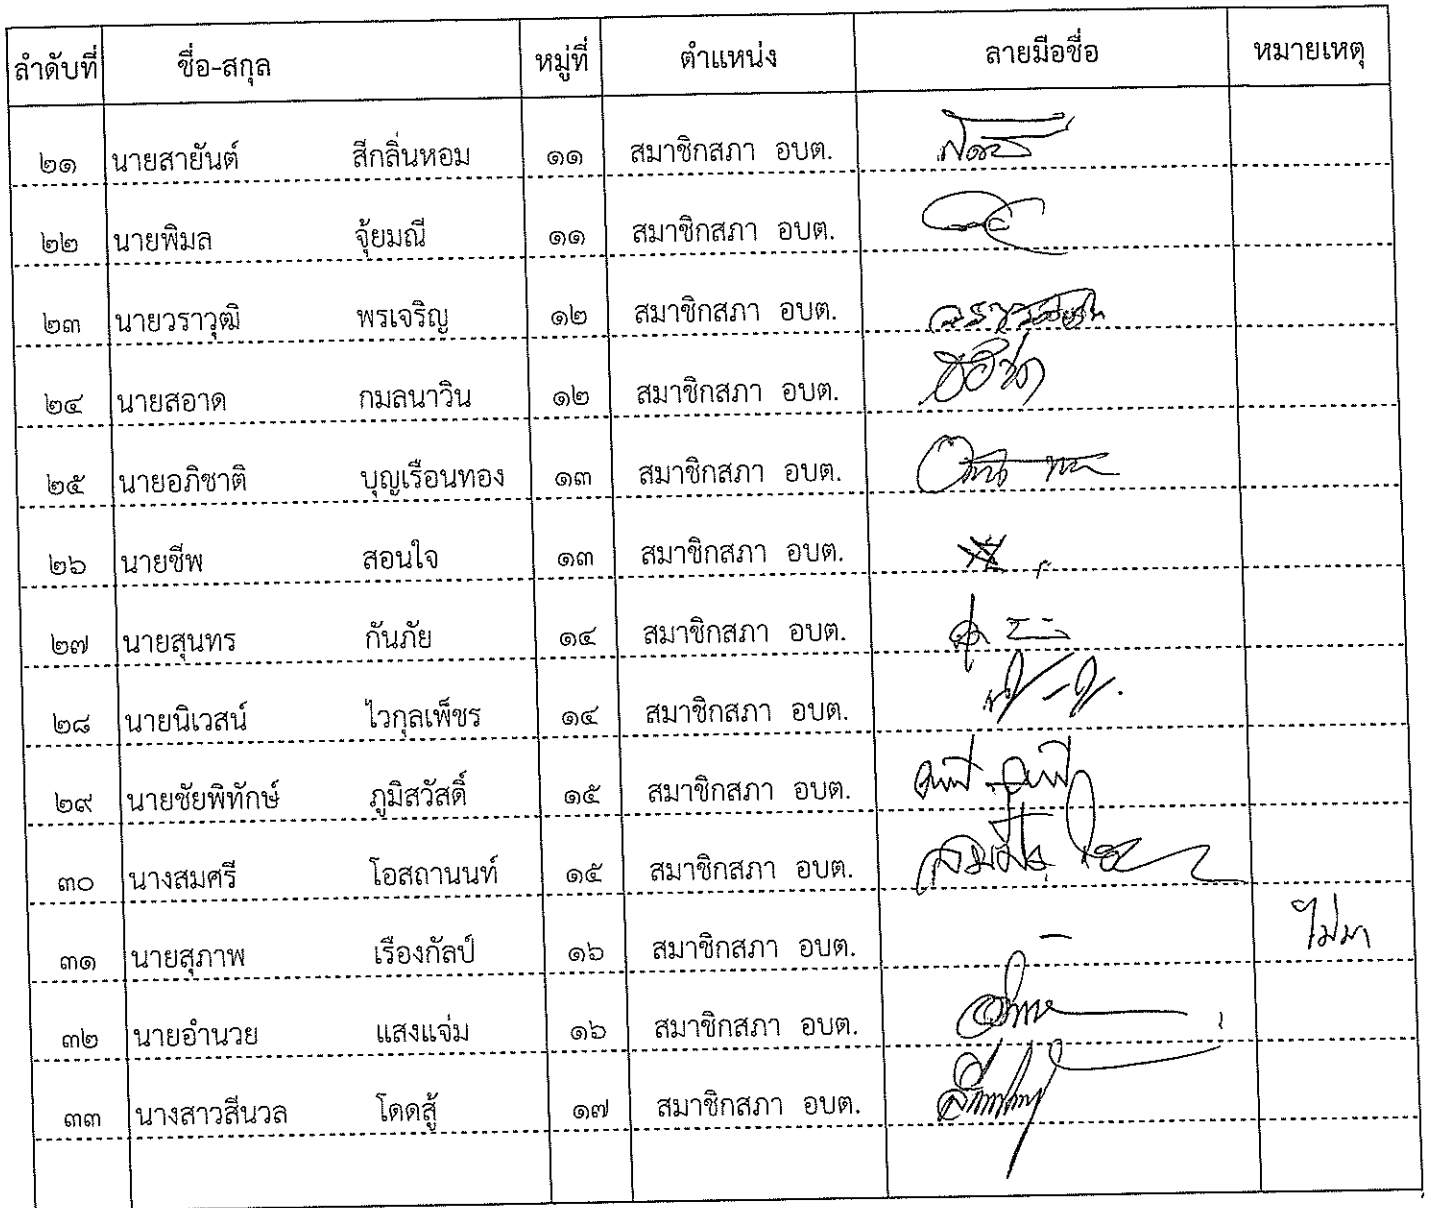 ลำดับที่ ชื่อ-สกุล หมู่ที่ ตำแหน่ง ลายมือชื่อ หมายเหตุ
๒๑ นายสายันต์ สีกลิ่นหอม ๑๑ สมาชิกสภา อบต.
๒๒ นายพิมล จุ้ยมณี ๑๑ สมาชิกสภา อบต.
๒๓ นายวราวุฒิ พรเจริญ ๑๒ สมาชิกสภา อบต.
๒๔ นายสอาด กมลนาวิน ๑๒ สมาชิกสภา อบต.
๒๕ นายอภิชาติ บุญเรือนทอง ๑๓ สมาชิกสภา อบต.
๒๖ นายชีพ สอนใจ ๑๓ สมาชิกสภา อบต.
๒๗ นายสุนทร กันภัย ๑๔ สมาชิกสภา อบต.
๒๘ นายนิเวสน์ ไวกุลเพ็ชร ๑๔ สมาชิกสภา อบต.
๒๙ นายชัยพิทักษ์ ภูมิสวัสดิ์ ๑๕ สมาชิกสภา อบต.
๓๐ นางสมศรี โอสถานนท์ ๑๕ สมาชิกสภา อบต.
๓๑ นายสุภาพ เรืองกัลป์ ๑๖ สมาชิกสภา อบต. - ไม่มา
๓๒ นายอำนวย แสงแจ่ม ๑๖ สมาชิกสภา อบต.
๓๓ นางสาวสีนวล โดดสู้ ๑๗ สมาชิกสภา อบต.